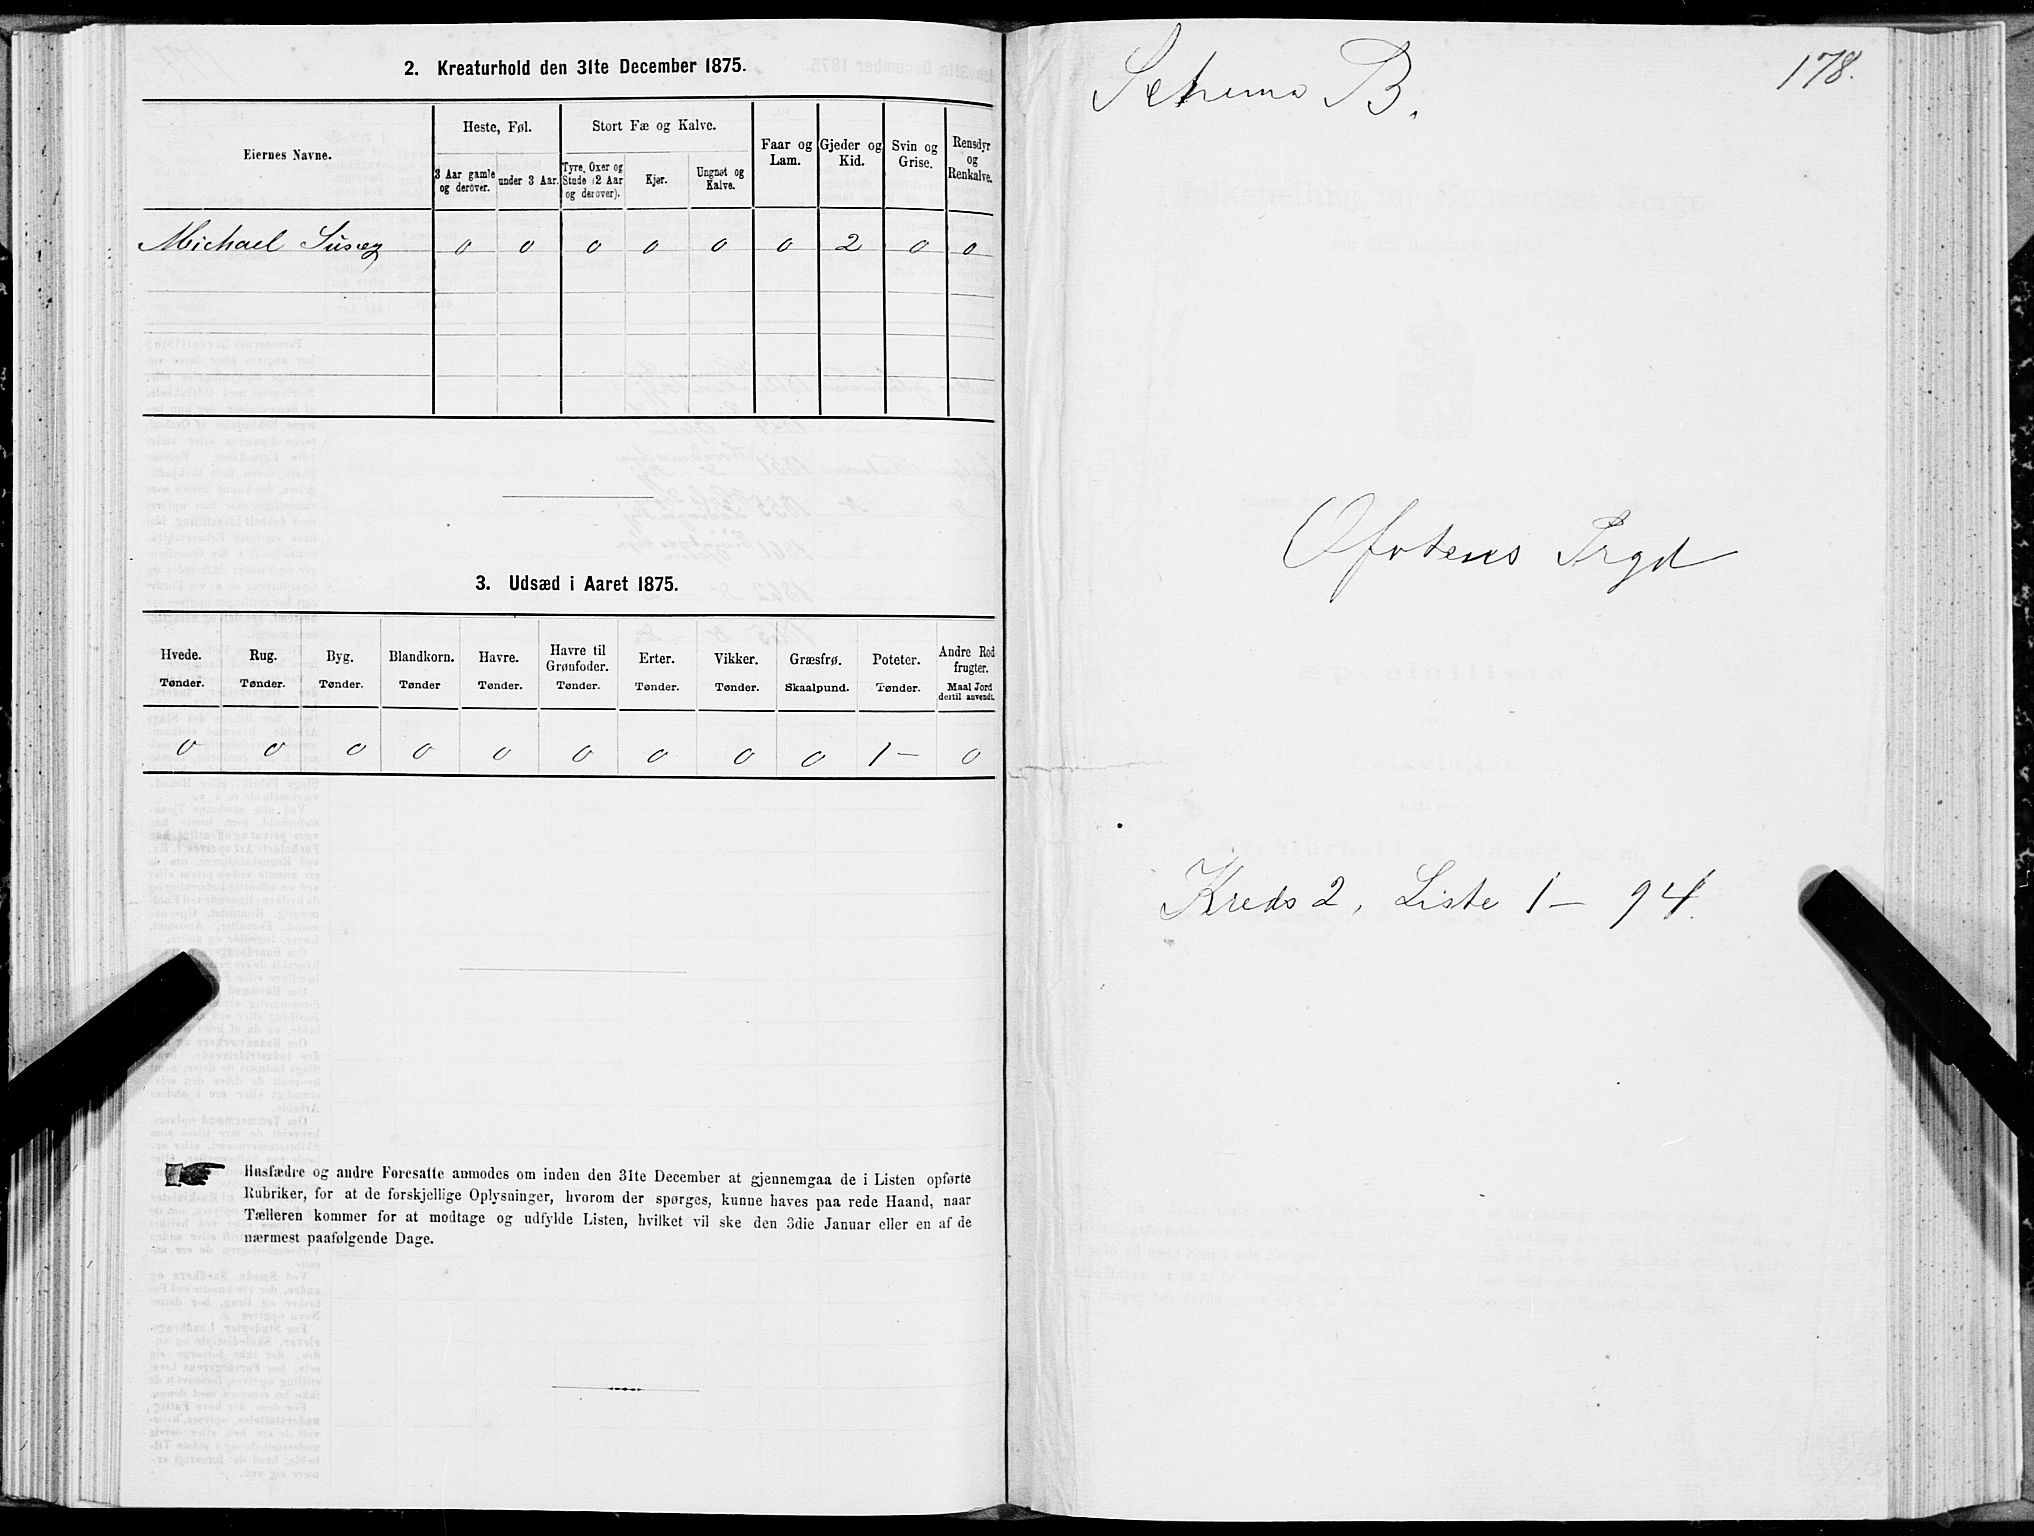 2. Kreaturhold den 31te December 1875.
Eiernes Navne.
Heste, Føl.
3 Aar gamle og derover.
under 3 Aar.
Stort Fæ og Kalve.
Tyre, Oxer og Stude (2 Aar og derover).
Kjør.
Ungnøt og Kalve.
Faar og Lam.
Gjeder og Kid.
Svin og Grise.
Rensdyr og Renkalve.
Michael 0 0 0 0 0 0 2 0 0
3. Udsæd i Aaret 1875.
Hvede. Rug. Byg. Blandkorn. Havre. Havre til Grønfoder. Erter. Vikker. Græsfrø. Poteter. Andre Rodfrugter.
Tønder. Tønder. Tønder. Tønder Tønder. Tønder. Tønder. Tønder. Skaalpund. Tønder. Maal Jord dertil anvendt.
0 0 0 0 0 0 0 0 0 1- 0
Husfædre og andre Foresatte anmodes om inden den 31te December at gjennemgaa de i Listen opførte
Rubriker, for at de forskjellige Oplysninger, hvorom der spørges, kunne haves paa rede Haand, naar
Tælleren kommer for at modtage og udfylde Listen, hvilket vil ske den 3die Januar eller en af de
nærmest paafølgende Dage.
178.
Schema B.
Ofotens Prgd
Kreds 2, Liste 1 - 94.